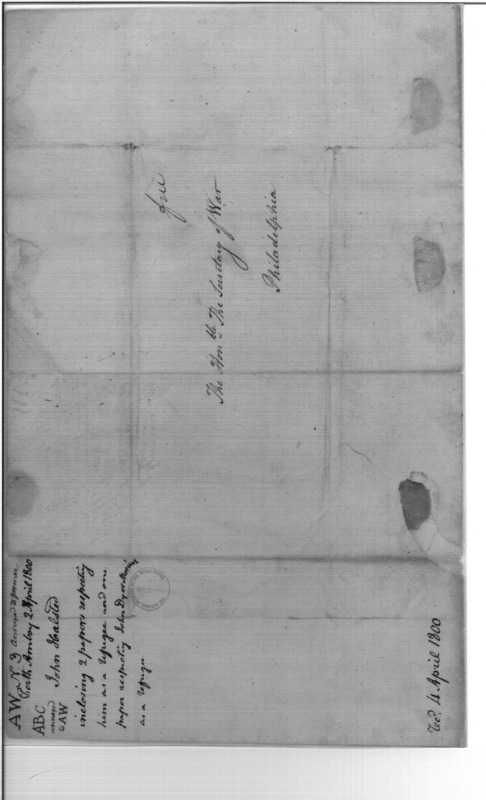 free
The Honble. The Secretary of War
Philadelphia
AW No 3 annexed to former
Perth Amboy 2 April 1800
ABC
annexed
to AW
John Halsted
inclosing 2 papers respecting
him as a refugee and one
paper respecting John D
as a refugee
Recd. 4 April 1800